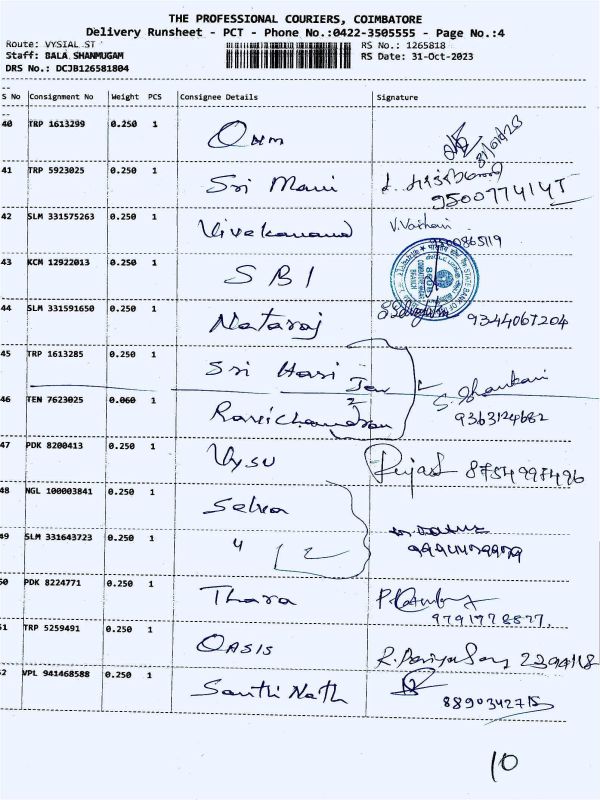 THE PROFESSIONAL COURIERS, COIMBATORE
Delivery Runsheet - PCT - Phone No.:0422-3505555 - Page No.:4
Route: VYSIAL ST RS No.: 1265818
Staff: BALA SHANMUGAM RS Date: 31-Oct-2023
DRS No.: DCJB126581804
S No Consignment No Weight PCS Consignee Details Signature
40 TRP 1613299 0.250 1
41 TRP 5923025 0.250 1 Sri Mani
42 SLM 331575263 0.250 1 Vivekanand V.Vaishani
9500865119
43 KCM 12922013 0.250 1 SBI STATE BANK OF
44 SLM 331591650 0.250 1 Nataraj 9344067204
45 TRP 1613285 0.250 1 Sri Hari
46 TEN 7623025 0.060 1 Ravichandran S. Bhavani
9363124682
47 PDK 8200413 0.250 1 Vysu 8754997496
48 NGL 100003841 0.250 1 Selva
49 SLM 331643723 0.250 1 4 2
50 PDK 8224771 0.250 1 Thara
9791778877.
51 TRP 5259491 0.250 1 OASIS 2394118
52 VPL 941468588 0.250 1 Santhi Nath
8890342715
10